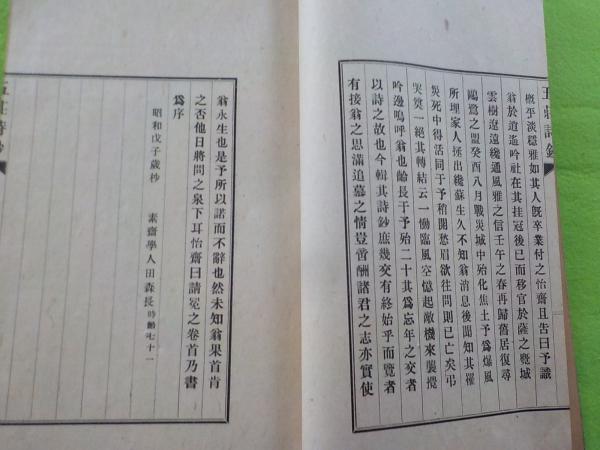 五莊詩鈔
概乎淡穩雅如其人旣卒業付之怡齋且告曰予識
翁於逍遙吟社在其挂冠後已而移官於薩之麑城
雲樹遼遠纔通風雅之信壬午之春再歸舊居復尋
鷗鷺之盟癸酉八月戰災城中殆化焦土予爲爆風
所埋家人拯出纔蘇生久不知翁消息後聞知其罹
災死中得活同于予稍開愁眉欲往問則已亡矣弔
哭焚一絕其轉結云一慟臨風空憶起敵機來襲攪
吟邊嗚呼翁也齡長于予殆二十其爲忘年之交者
以詩之故也今輯其詩鈔庶幾交有終始乎而覽者
有接翁之思滿追慕之情豈啻酬諸君之志亦實使
翁永生也是予所以諾而不辭也然未知翁果首肯
之否他日將問之泉下耳怡齋曰請冕之卷首乃書
爲序
昭和戊子歲杪 素齋學人田森長時齡七十一
五莊詩鈔